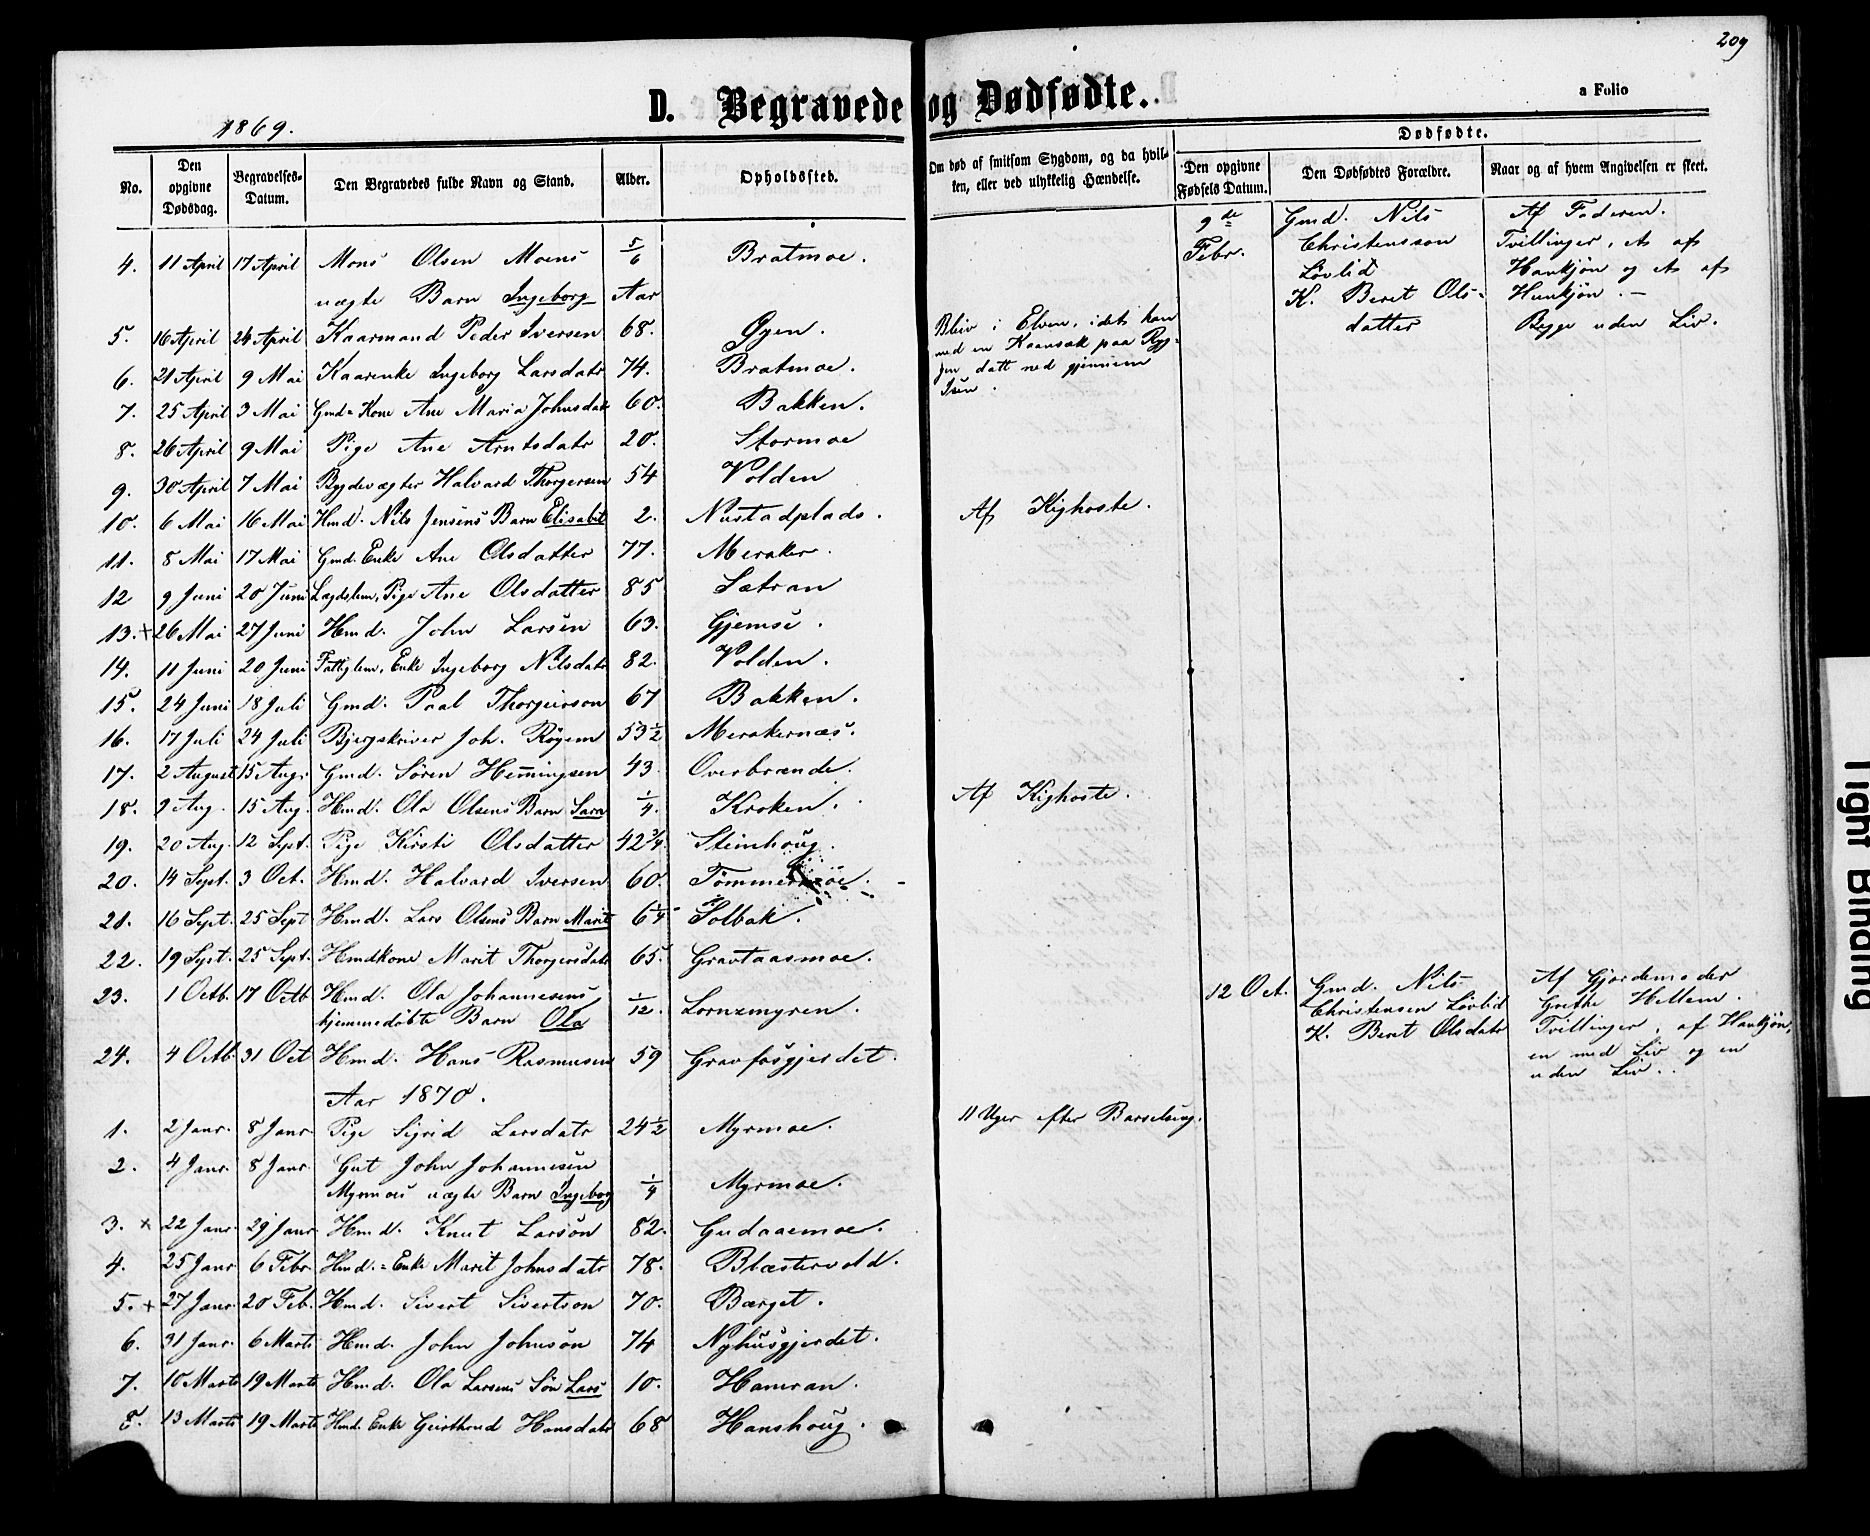 209
D. Begravede og Dødfødte.
a Folio
1869.
No. | Den opgivne Dødsdag. | Begravelses-Datum. | Den Begravedes fulde Navn og Stand. | Alder. | Opholdssted. | Om død af smitsom Sygdom, og da hvilken, eller ved ulykkelig Hændelse. | Dødfødte. Den opgivne Fødsels Datum. | Den Dødfødtes Forældre. | Naar og af hvem Angivelsen er skeet.
4. 11 April 17 April Mons Olsen Moens 5/6 Bratmoe.
uægte Barn Ingeborg Aar
5. 16 April 24 April Kaarmand Peder Iversen 68. Øyen. Blev i Elven, idet han
med en Kaarsæk paa Ryg-
gen datt ned gjennem
Isen.
6. 21 April 9 Mai Kaarenke Ingeborg Larsdatr 74. Bratmoe.
7. 25 April 3 Mai Gmd. Kone Ane Maria Johnsdatr 60. Bakken.
8. 26 April 9 Mai Pige Ane Arntsdatr 20. Stormoe
9. 30 April 7 Mai Bygdevægter Halvard Thorgersen 54 Volden
10. 6 Mai 16 Mai Hmd. Nils Jensens Barn Elisabet 2. Nustadplads. Af Kighoste.
11. 8 Mai 17 Mai Gmd. Enke Ane Olsdatter 77. Meraker.
12 9 Juni 20 Juni Lægdslem, Pige Ane Olsdatter 85 Sætran
13. + 26 Mai 27 Juni Hmd. John Larsen 63. Gjemse.
14. 11 Juni 20 Juni Fattiglem, Enke Ingeborg Nilsdatr 82. Volden.
15. 24 Juni 18 Juli Gmd. Paal Thorgeirson 67 Bakken.
16. 17 Juli 24 Juli Bjergskriver Joh. Röyem 53 1/2 Merakernæs.
17. 2 August 15 Aug. Gmd. Sören Hemingsen 43. Overbrænde.
18. 2 Aug. 15 Aug. Hmd. Ola Olsens Barn Sara 1/4. Kroken. Af Kighoste.
19. 20 Aug. 12 Sept. Pige Kirsti Olsdatter 42 3/4. Steinhoug.
20. 14 Sept. 3 Oct. Hmd. Halvard Iversen 60. Tömmermoe.
21. 16 Sept. 25 Sept Hmd. Lars Olsens Barn Marit 6 1/4 Solbak.
22. 19 Sept. 25 Sept. Hmdkone Marit Thorgersdatr 65. Gravtaasmoe.
23. 1 Octb. 17 Octb Hmd. Ola Johannesens
hjemmedöbte Barn Ola 1/12. Lornzmyren.
24. 4 Octb 31 Oct Hmd. Hans Rasmusen 59 Gravfosgjerdet.
Aar 1870.
1. 2 Janr. 8 Janr. Pige Sigrid Larsdatr 24 1/2 Myrmoe. 11 Uger efter Barselseng.
2. 4 Janr. 8 Janr. Gut John Johannesen
Myrmoes uægte Barn Ingeborg 1/4 Myrmoe.
3. x 22 Janr. 29 Janr. Hmd. Knut Larson 82. Gudaaemoe.
4. 25 Janr 6 Febr Hmd. Enke Marit Johnsdatr 78. Blæstervold.
5. + 27 Janr. 20 Feb. Hmd. Sivert Sivertson 70. Bærget.
6. 31 Janr. 6 Marts Hmd. John Johnson 74 Nyhusgjerdet.
7. 10 Marts 19 Marts Hmd. Ola Larsens Sön Lars 10. Hameran.
8. 13 Marts 19 Marts Hmd. Enke Geirthrud Hansdatr 68 Hanshoug.
9de Febr. Gmd. Nils Af Faderen.
Christensson Tvillinger, et af
Lövlid Hankjön og et af
K. Beret Ols- Hunkjön. -
datter Begge uden Liv.
12 Oct. Gmd. Nils Af Gjordemoder
Christensen Lövlid Grethe Hellem.
K. Beret Olsdatr Tvillinger, af Hankjön,
en med Liv og en
uden Liv.
Tight Binding